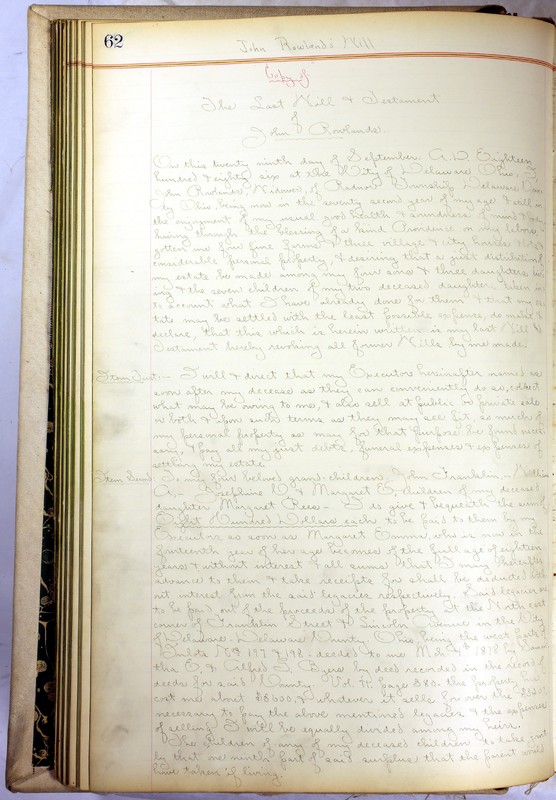 62
John Rowlands Will
Copy of
The Last Will & Testament
of
John Rowlands.
On this twenty ninth day of September. A.D. Eighteen
hundred & eighty six at the City of Delaware Ohio, I,
John Rowlands, Widower, of Radnor Township Delaware Coun-
ty Ohio, being now in the seventy second year of my age & still in
the enjoyment of my usual good health & soundness of mind &
having through the blessing of a kind Providence on my labors
gotten me four fine farms & three village & city houses & lots &
considerable personal property, & desiring that a just distribution of
my estate be made among my four sons & three daughters liv-
ing & the seven children of my two deceased daughters, taken in-
to account what I have already done for them & that my es-
tate may be settled with the least possible expense, do make &
declare, that this which is herein written is my last Will &
Testament hereby revoking all former Wills by me made.
Item First:- I will & direct that my Executors hereinafter named as
soon after my decease as they can conveniently do so, collect
what may be owing to me, & also sell at public or private sale
or both & upon such terms as they may see fit, so much of
my personal property as may for that purpose be found neces-
sary, & pay all my just debts, funeral expenses & expenses of
settling my estate.
Item Second To my four beloved grand-children, John Franklin,-
A,- Josephine D & Margaret E, children of my deceased
daughter Margret Rees- I do give & bequeath the sum of
Eight Hundred Dollars each to be paid to them by my
Executors as soon as Margret Emma, who is now in the
fourteenth year of her age becomes of the full age of eighteen
years & without interest & all sums that I may hereafter
advance to them & take receipts for shall be deducted with-
out interest from the said legacies respectively. Said legacies are
to be paid out of the proceeds of the property at the North east
corner of Franklin Street & Lincoln Avenue in the City
of Delaware. Delaware County, Ohio, being the west part of
Inlots Nos 197 & 198. deeded to me 1878 by
E. & Alfred J. Byers by deed recorded in the record of
deeds for said County Vol. 71. page 380. the property has
cost me about $3600. & whatever it sells for over the $3200
necessary to pay the above mentioned legacies & the expenses
of selling I will be equally divided among my heirs.
The children of any of my deceased children to take joint-
ly that one ninth part of said surplus that the parent would
have taken if living.